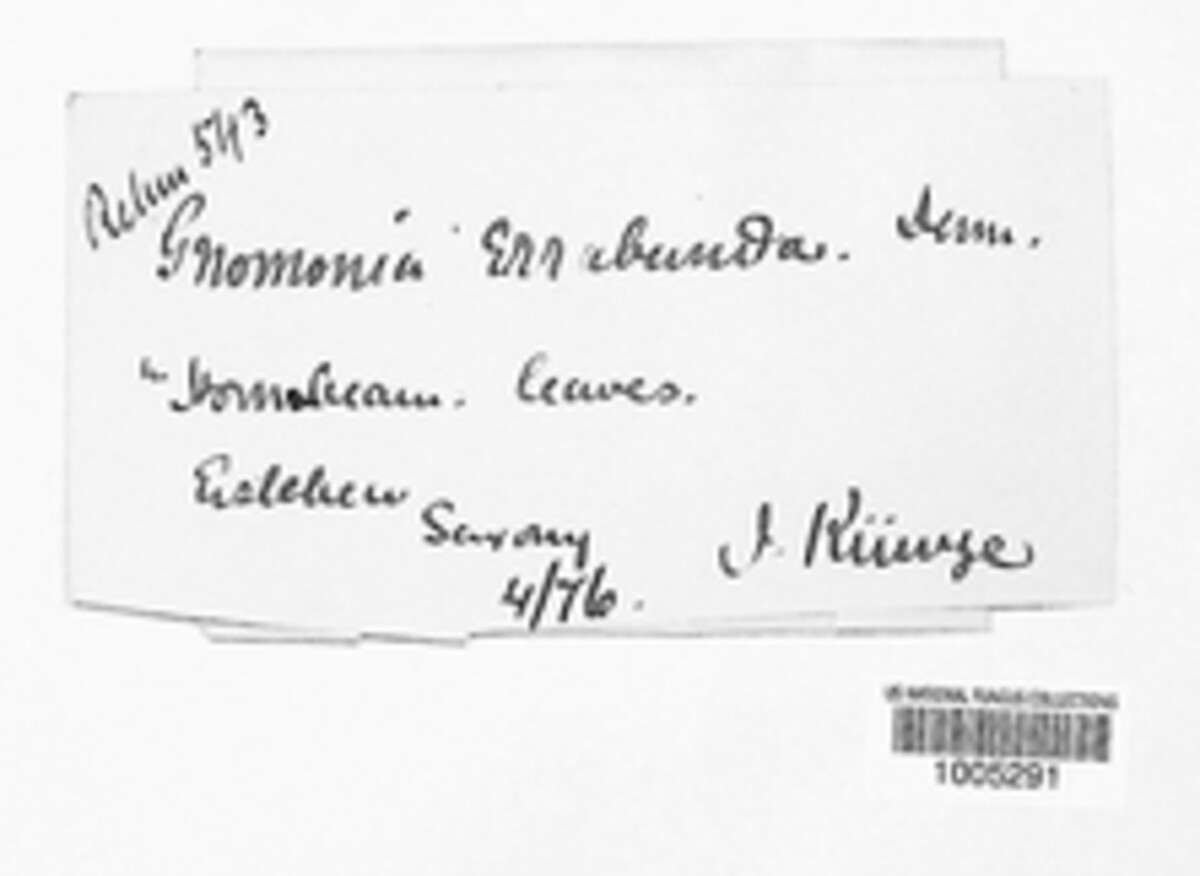 Rehm 543
Gnomonia Errabunda. Derm.
" Hornbeam. leaves.
Eisleben
Saxony J. Küinze
4/76.
US NATIONAL FUNGUS COLLECTIONS
1005291